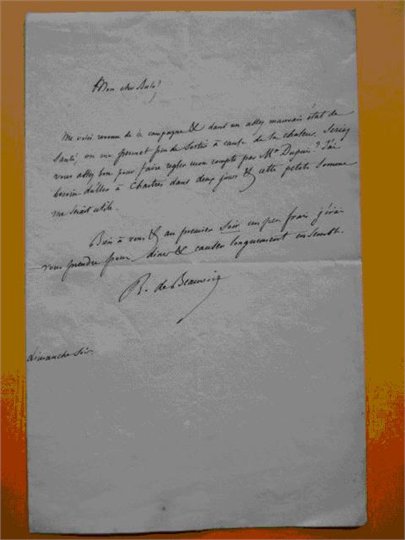 Mon cher
Me voici revenu de la campagne & dans un assez mauvais état de
santé, on me permet peu de sorties à cause de la chaleur. Seriez
vous assez bon pour faire régler mon compte par Mr Dupuis? J'ai
besoin d'aller à Chartres dans deux jours & cette petite somme
me serait utile.
Bien à vous & au premier soir un peu frais j'irai
vous prendre pour diner & causer longuement ensemble.
R. de Beauvoir
dimanche soir.